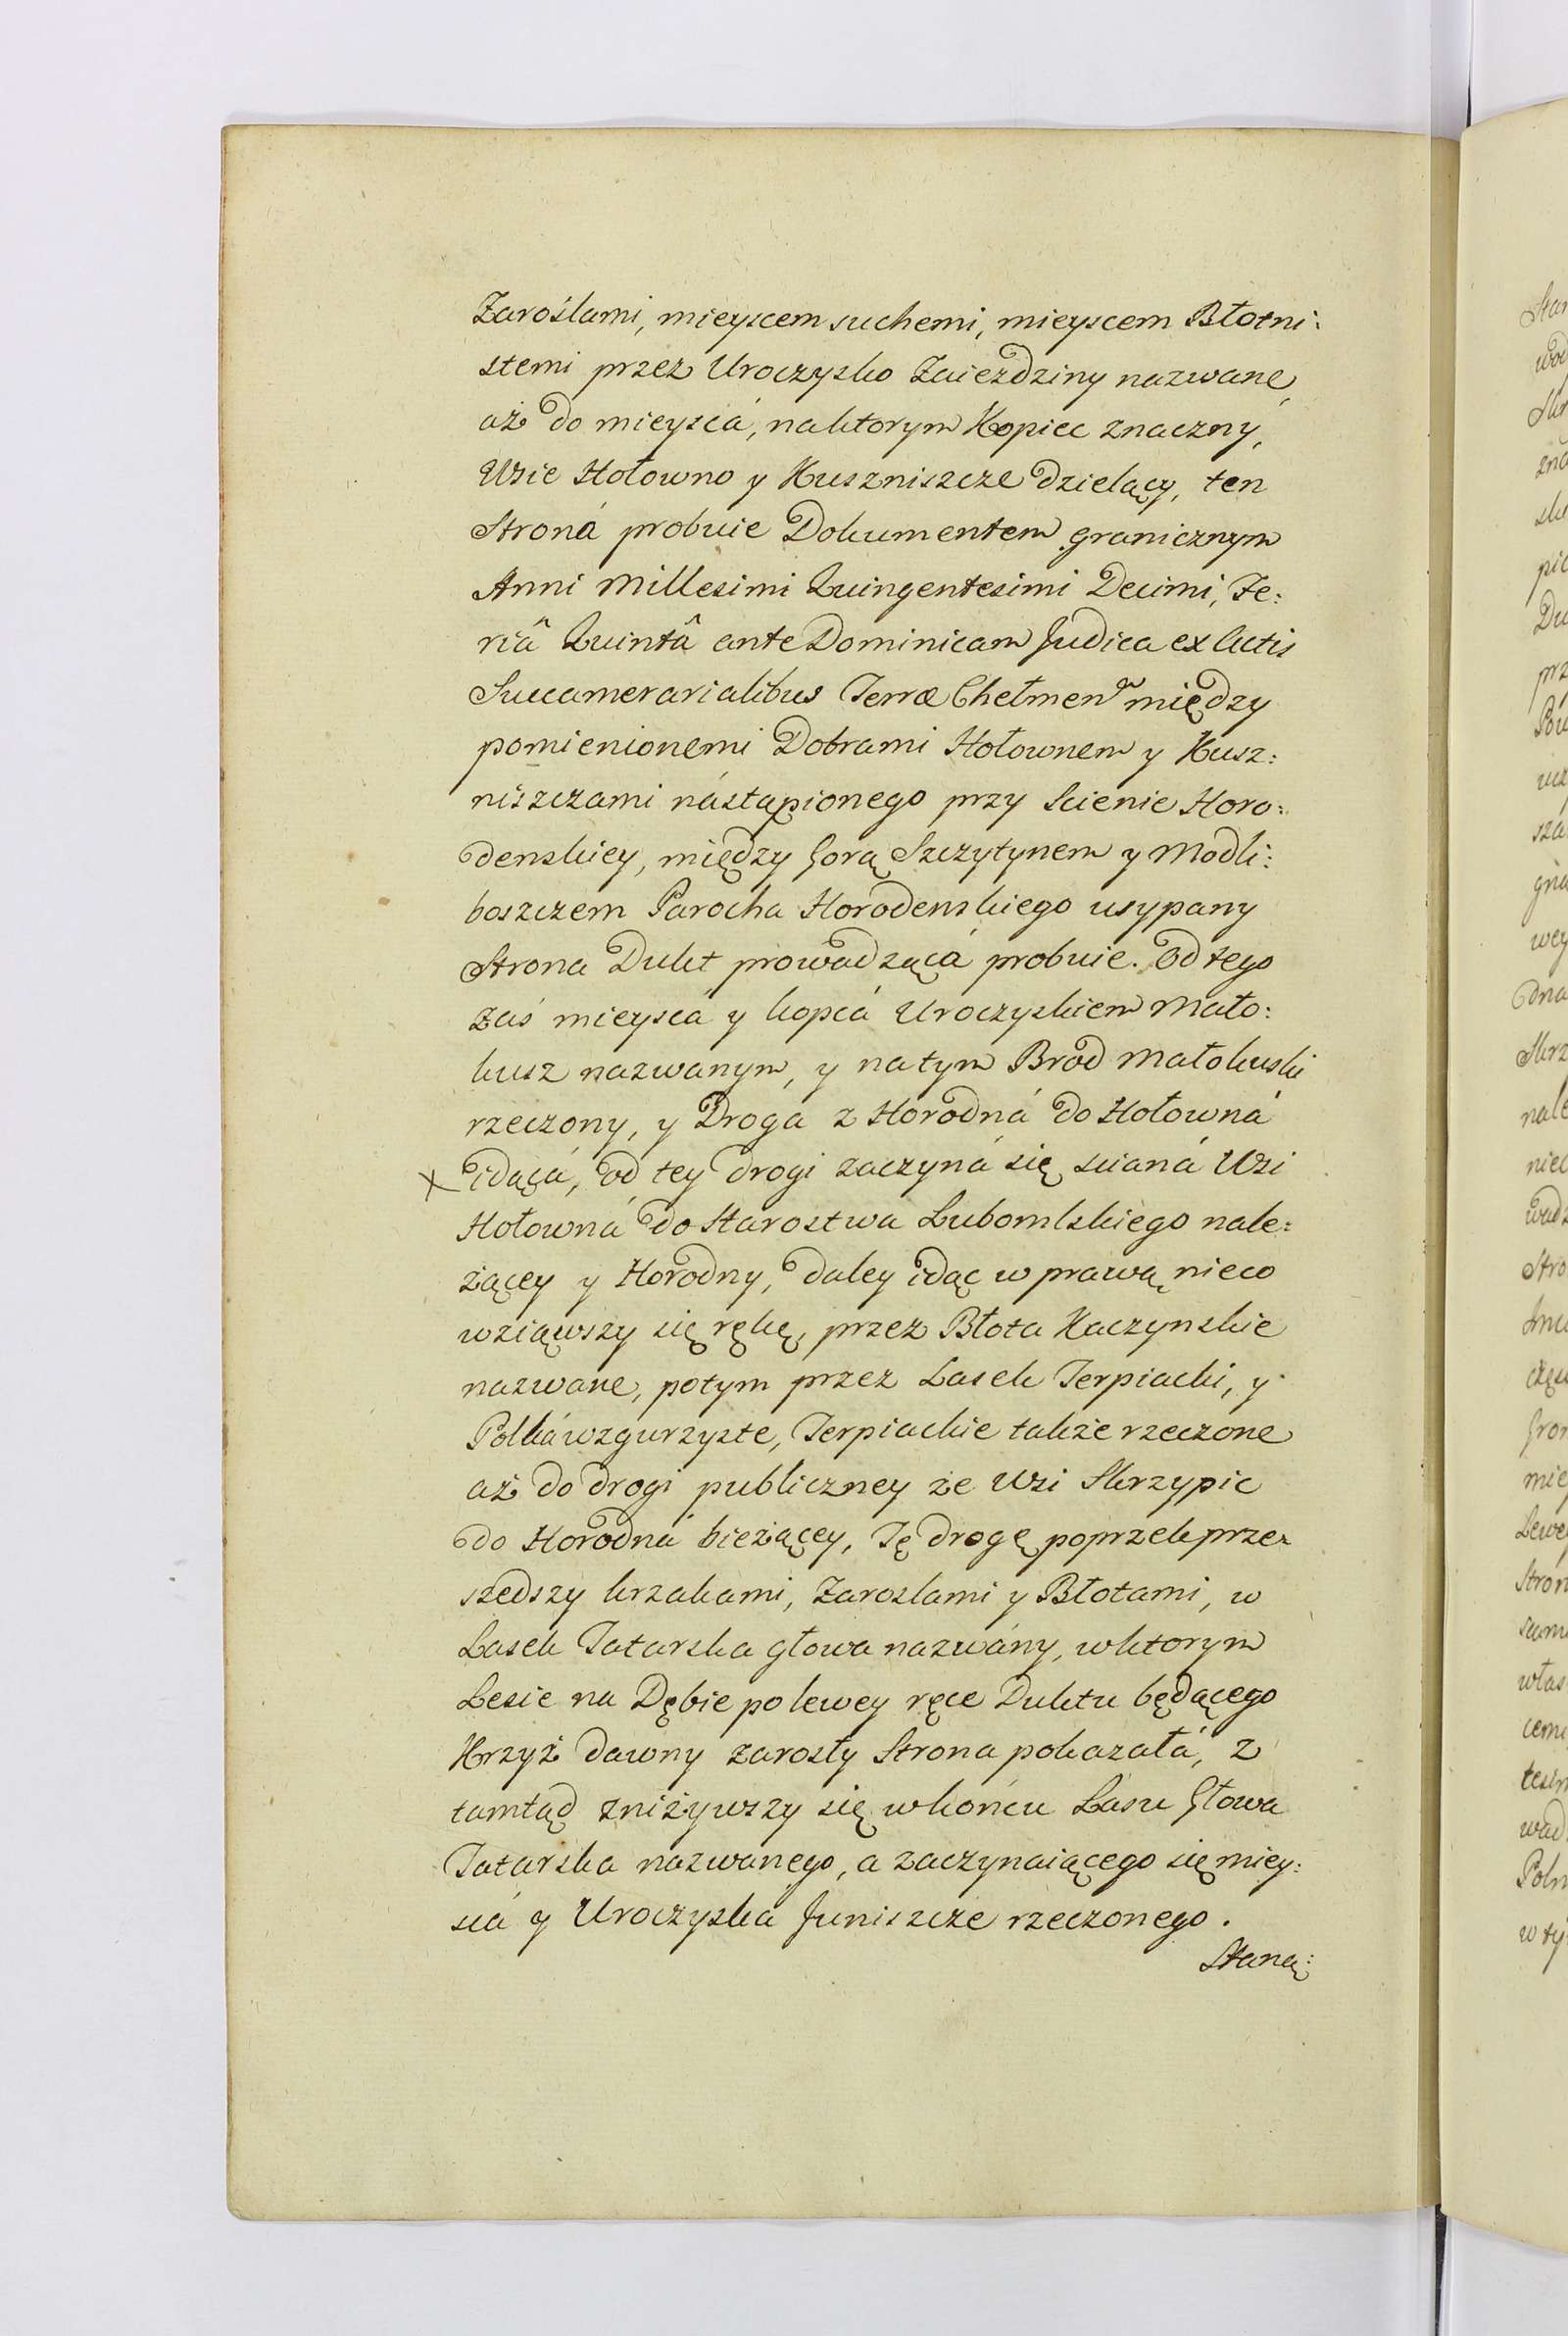 Zaroślami, mieyscem suchemi, mieyscem Błotni:
stemi przez Uroczysko Zaiezdziny nazwane,
aż do mieyscá, naktorym Kopiec znaczny,
Wsie Hołowno y Kuszniszcze dzielący, ten
Stroná probuie Dokumentem granicznym
Anni Millesimi Quingentesimi Decimi, Fe:
riâ Quintâ ante Dominicam Judica ex Actis
Succamerarialibus Terræ Chełmen. między
pomienionemi Dobrami Hołownem y Kusz:
niszczami nástąpionego przy Scienie Horo:
denskiey, między Gorą Szczytynem y Modli:
boszczem Parocha Horodenskiego usypany
Strona Dukt prowadzącá probuie. Od tego
zaś mieyscá y kopcá Uroczyskiem Mało:
kusz nazwanym, y natym Brod Małokuski
rzeczony, y Droga z Horodná do Hołowná
X idącá, od tey drogi zaczyná się scianá Wsi
Hołowná do Starostwa Lubomlskiego nale:
żącey y Horodny, daley idąc w prawą nieco
wziąwszy się rękę, przez Błota Kaczynskie
nazwane, potym przez Lasek Terpiacki, y
Polká wzgurzyste, Terpiackie także rzeczone
aż do drogi publiczney że Wsi Skrzypic
do Horodná bieżącey, Tę drogę poprzek prze:
szedszy krzakami, Zaroslami y Błotami, w
Lasek Tatarska głowa nazwány, wktorym
Lesie na Dębie po lewey ręce Duktu będącego
Krzyż dawny zarosły Strona pokazałá, z
tamtąd zniżywszy się wkońcu Lasu Głowa
Tatarska nazwanego, a zaczynaiącego się miey:
scá y Uroczyská Juniszcze rzeczonego.
Staną: